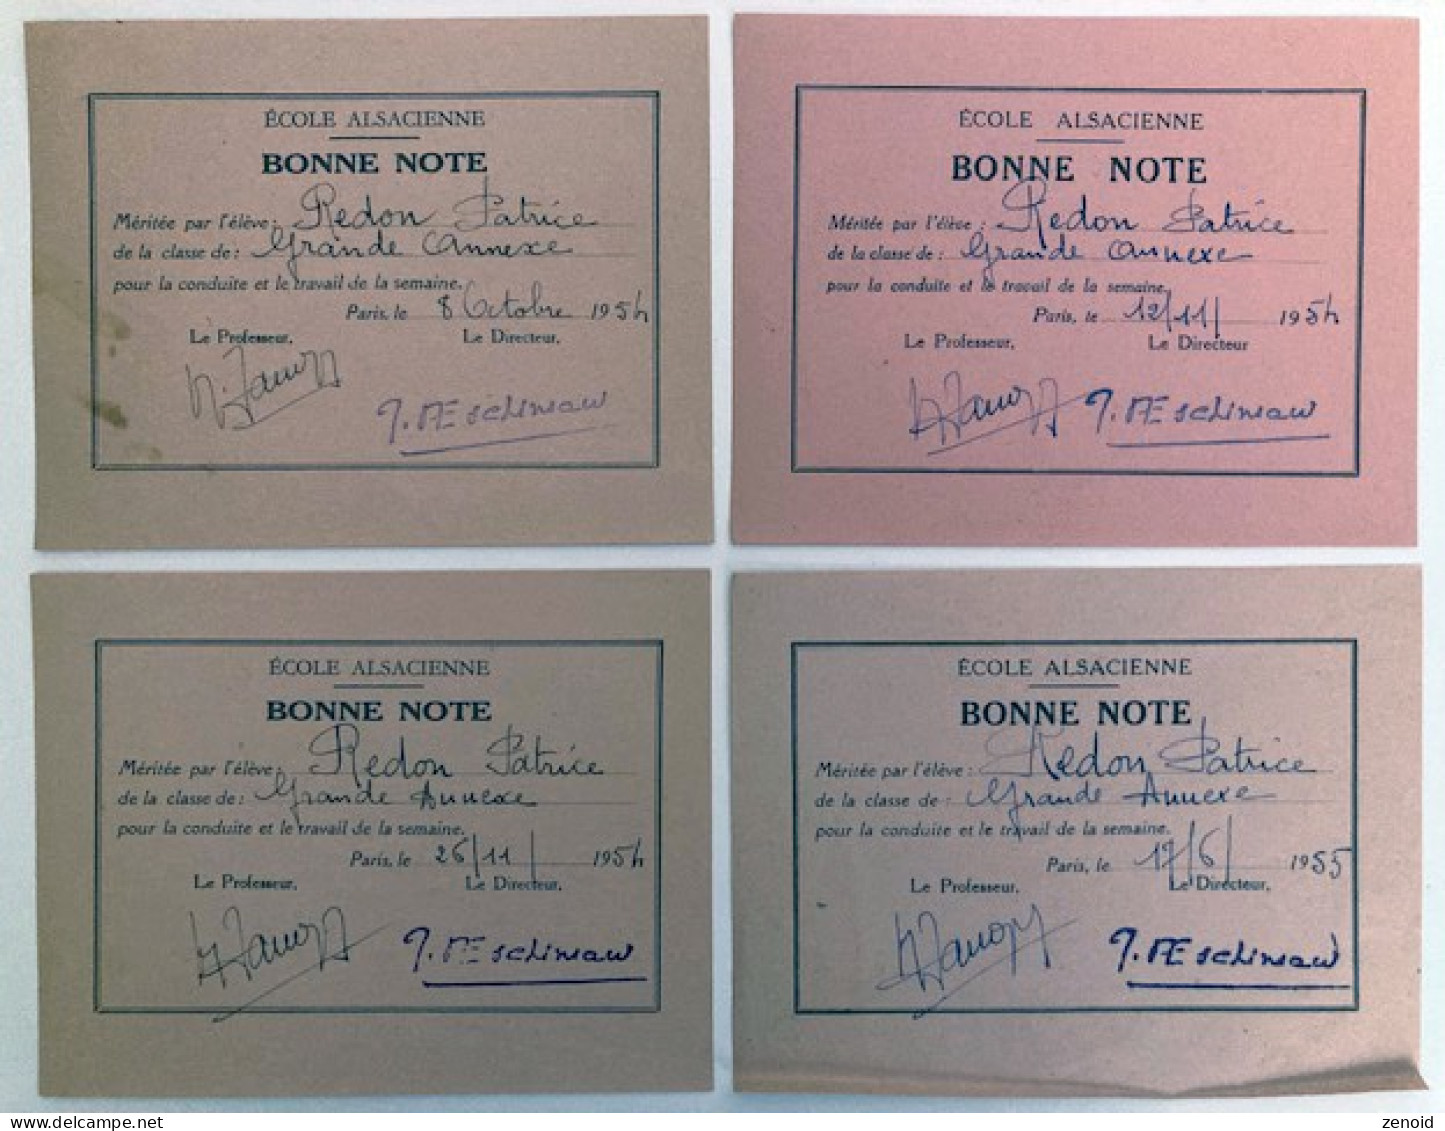 ÉCOLE ALSACIENNE
BONNE NOTE
Méritée par l'élève: Redon Patrice
de la classe de: Grande Annexe
pour la conduite et le travail de la semaine.
Paris, le 8 Octobre 1954
Le Professeur. Le Directeur.
ÉCOLE ALSACIENNE
BONNE NOTE
Méritée par l'élève: Redon Patrice
de la classe de: Grande Annexe
pour la conduite et le travail de la semaine.
Paris, le 12/11/ 1954
Le Professeur, Le Directeur
ÉCOLE ALSACIENNE
BONNE NOTE
Méritée par l'élève: Redon Patrice
de la classe de: Grande Annexe
pour la conduite et le travail de la semaine.
Paris, le 26/11/ 1954
Le Professeur, Le Directeur,
ÉCOLE ALSACIENNE
BONNE NOTE
Méritée par l'élève: Redon Patrice
de la classe de: Grande Annexe
pour la conduite et le travail de la semaine.
Paris, le 17/6/ 1955
Le Professeur, Le Directeur,
zenoid